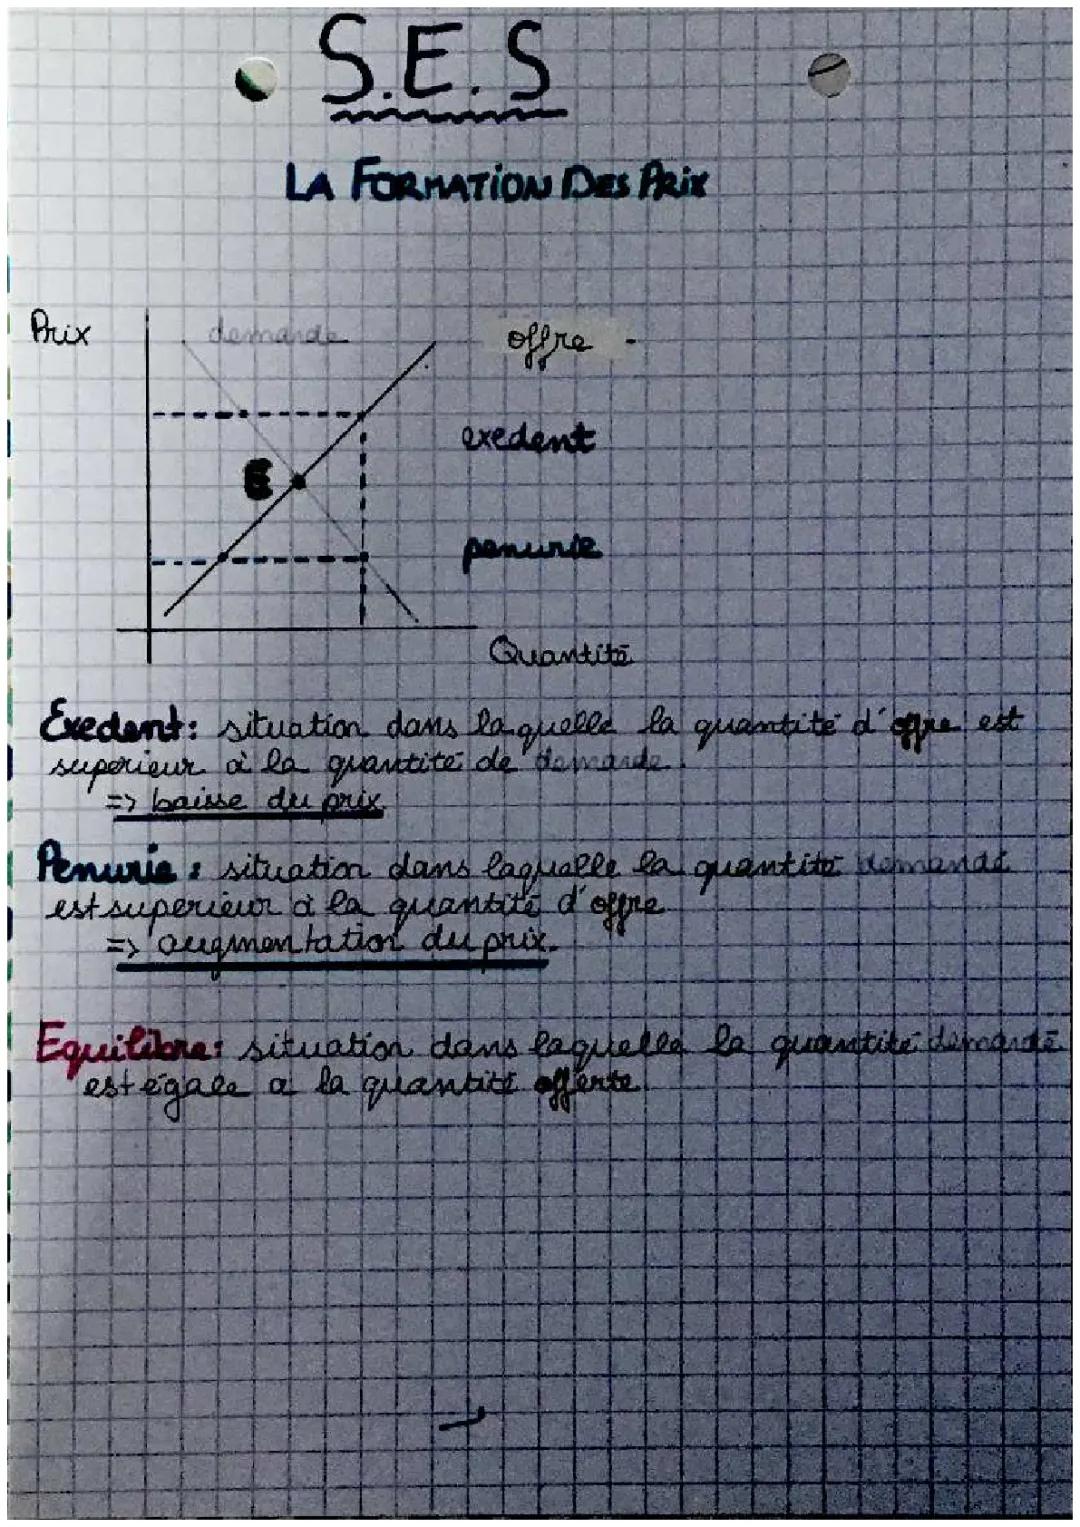 S.E.S
LA FORMATION DES PRIX
Prix
demande
offre
exedent
E
penurie
Quantité
Exedent: situation dans laquelle la quantité d'offre est
superieur à la quantité de demande.
=> baisse du prix
Penurie: situation dans laquelle la quantité demandé
est superieur à la quantité d'offre
=> augmentation du prix.
Equilibre: situation dans laquelle la quantité demandé
est égale a la quantité offerte.